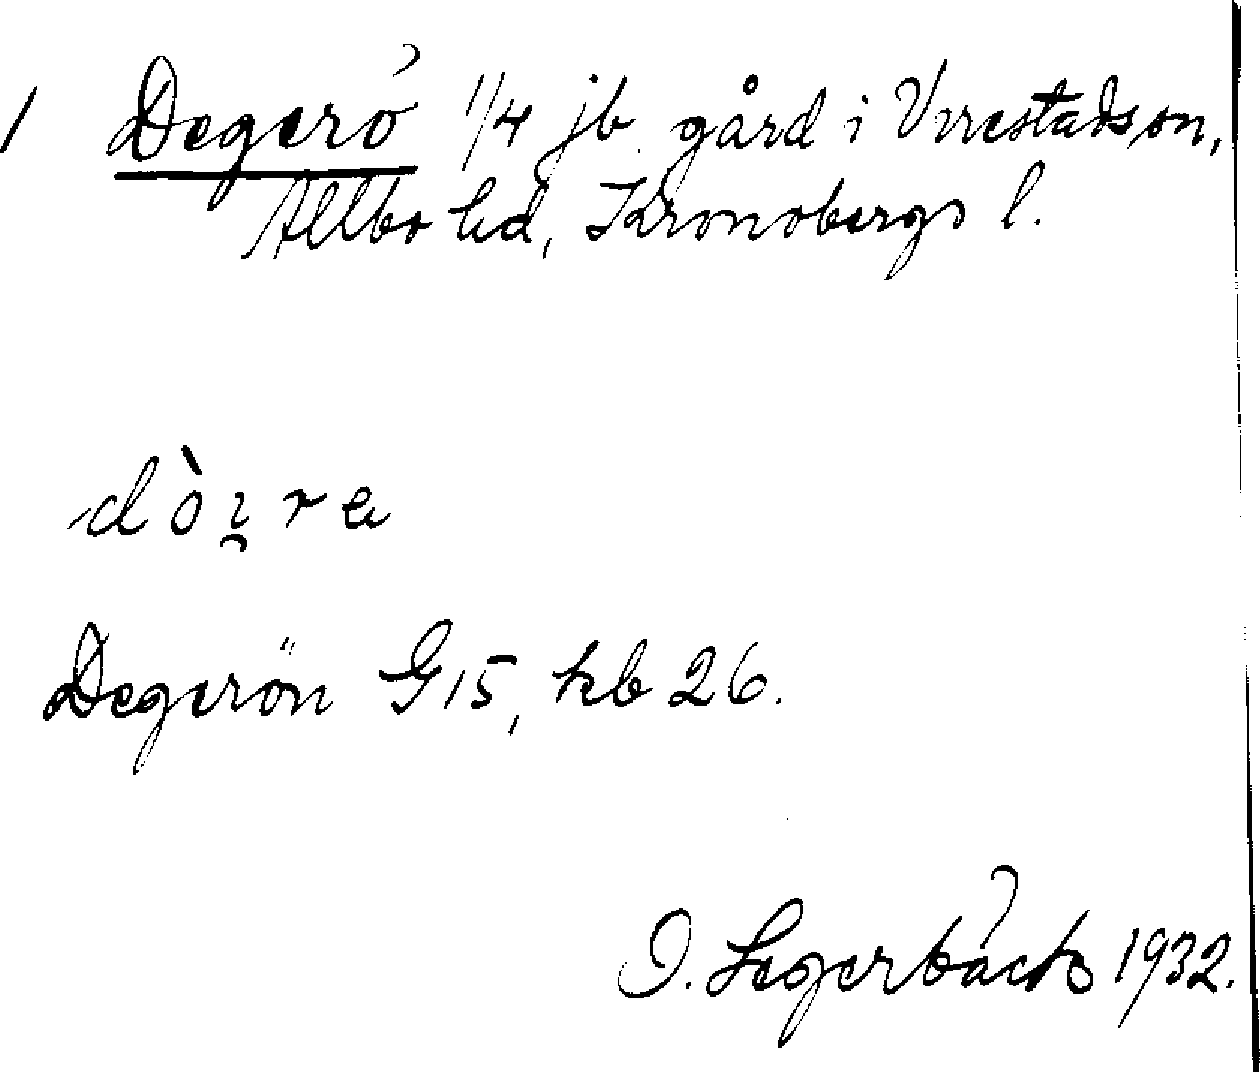 1 Degerö 1/4 jb. gård i Virestads sn,
Allbo hd, Kronobergs l.
dòi̯ra
Degerön G15, kb 26.
O. Segerbäck 1932.